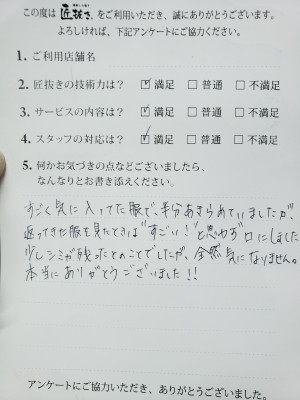 この度は 匠抜き をご利用いただき、誠にありがとうございます。
よろしければ、下記アンケートにご協力ください。
1. ご利用店舗名
2. 匠抜きの技術力は？ ☑満足 □普通 □不満足
3. サービスの内容は？ ☑満足 □普通 □不満足
4. スタッフの対応は？ ☑満足 □普通 □不満足
5. 何かお気づきの点などございましたら、
なんなりとお書き添えください。
すごく気に入ってた服で、半分あきらめていましたが、
返ってきた服を見たときは"すごい！"と思わず口にしました
少しシミが残ったとのことでしたが、全然気になりません。
本当にありがとうございました!!
アンケートにご協力いただき、ありがとうございました。